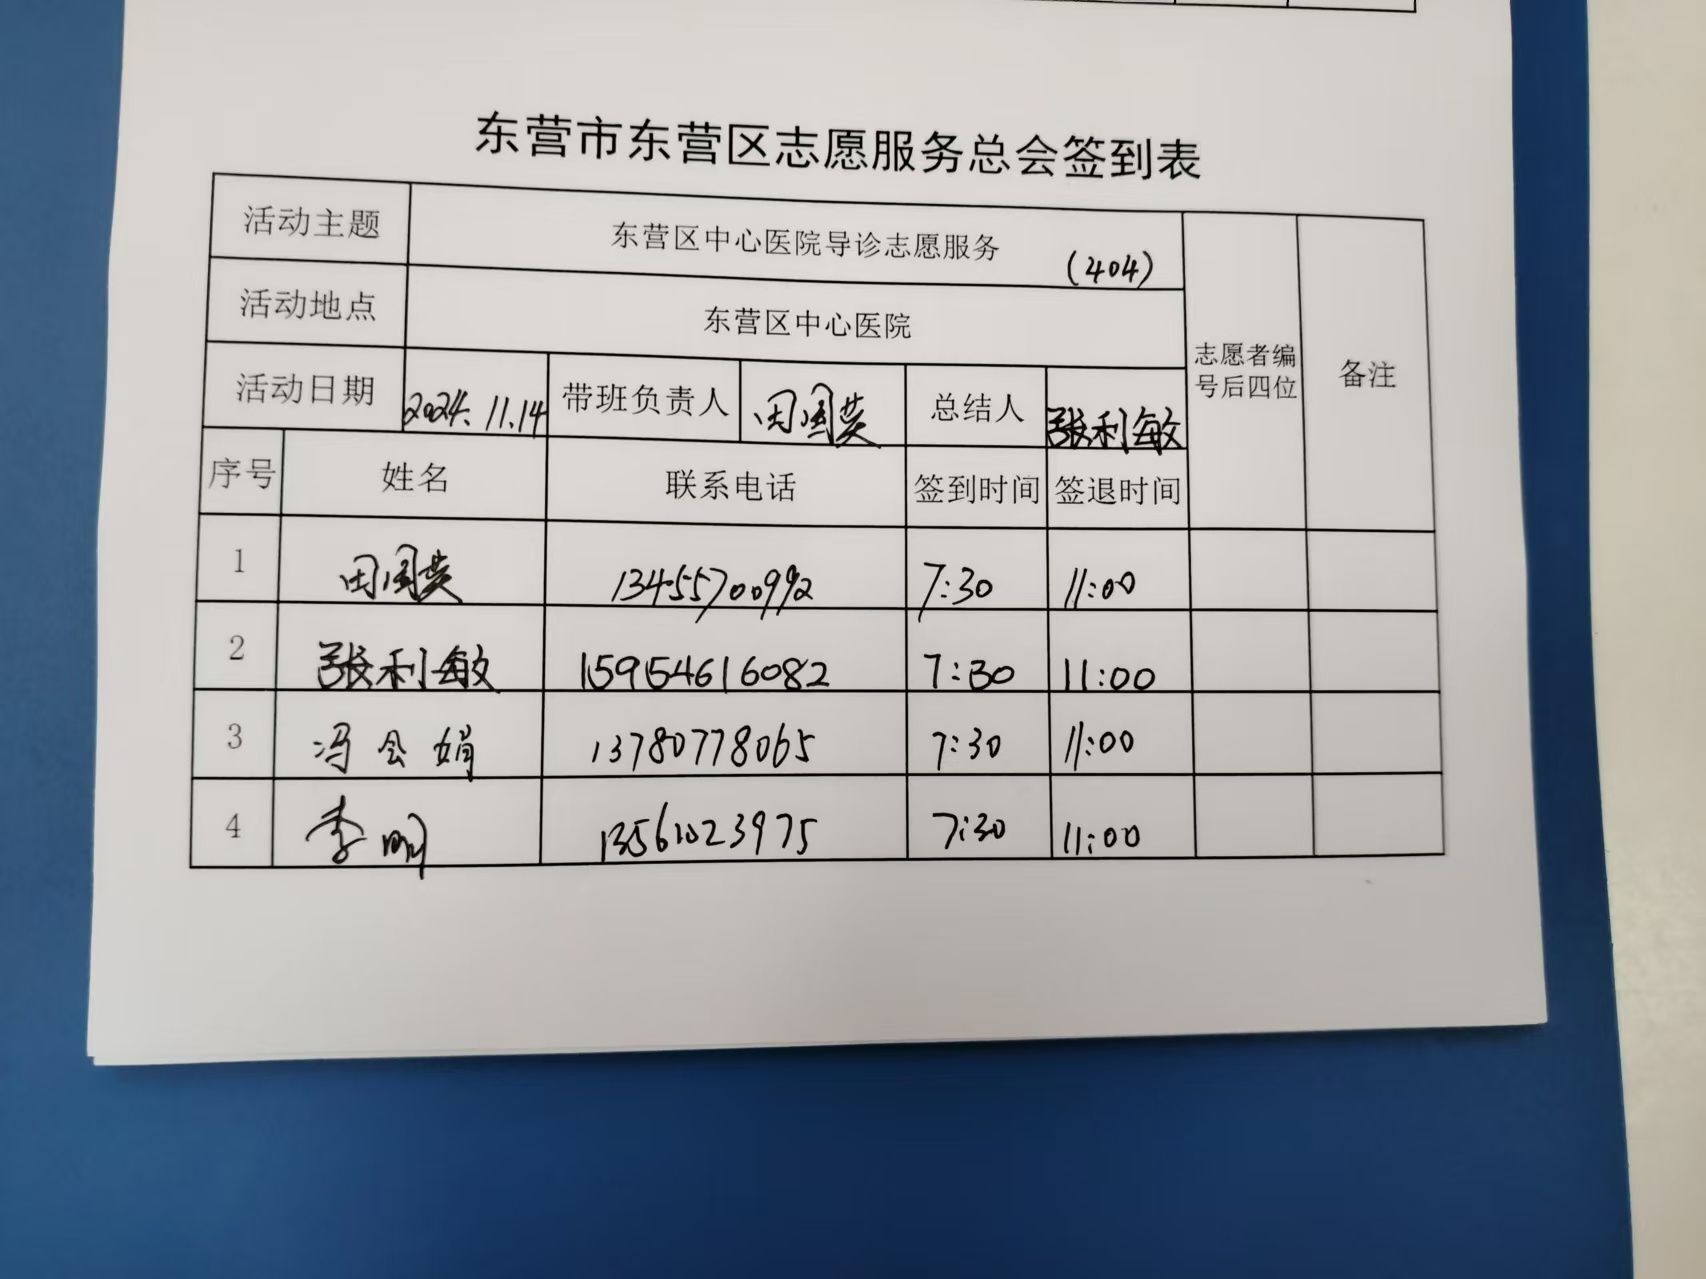 东营市东营区志愿服务总会签到表
活动主题 东营区中心医院导诊志愿服务 (404) 志愿者编号后四位 备注
活动地点 东营区中心医院
活动日期 2024.11.14 带班负责人 田国英 总结人 张利敏
序号 姓名 联系电话 签到时间 签退时间
1 田国英 13455700992 7:30 11:00
2 张利敏 15954616082 7:30 11:00
3 冯会娟 13780778065 7:30 11:00
4 李明 13561023975 7:30 11:00